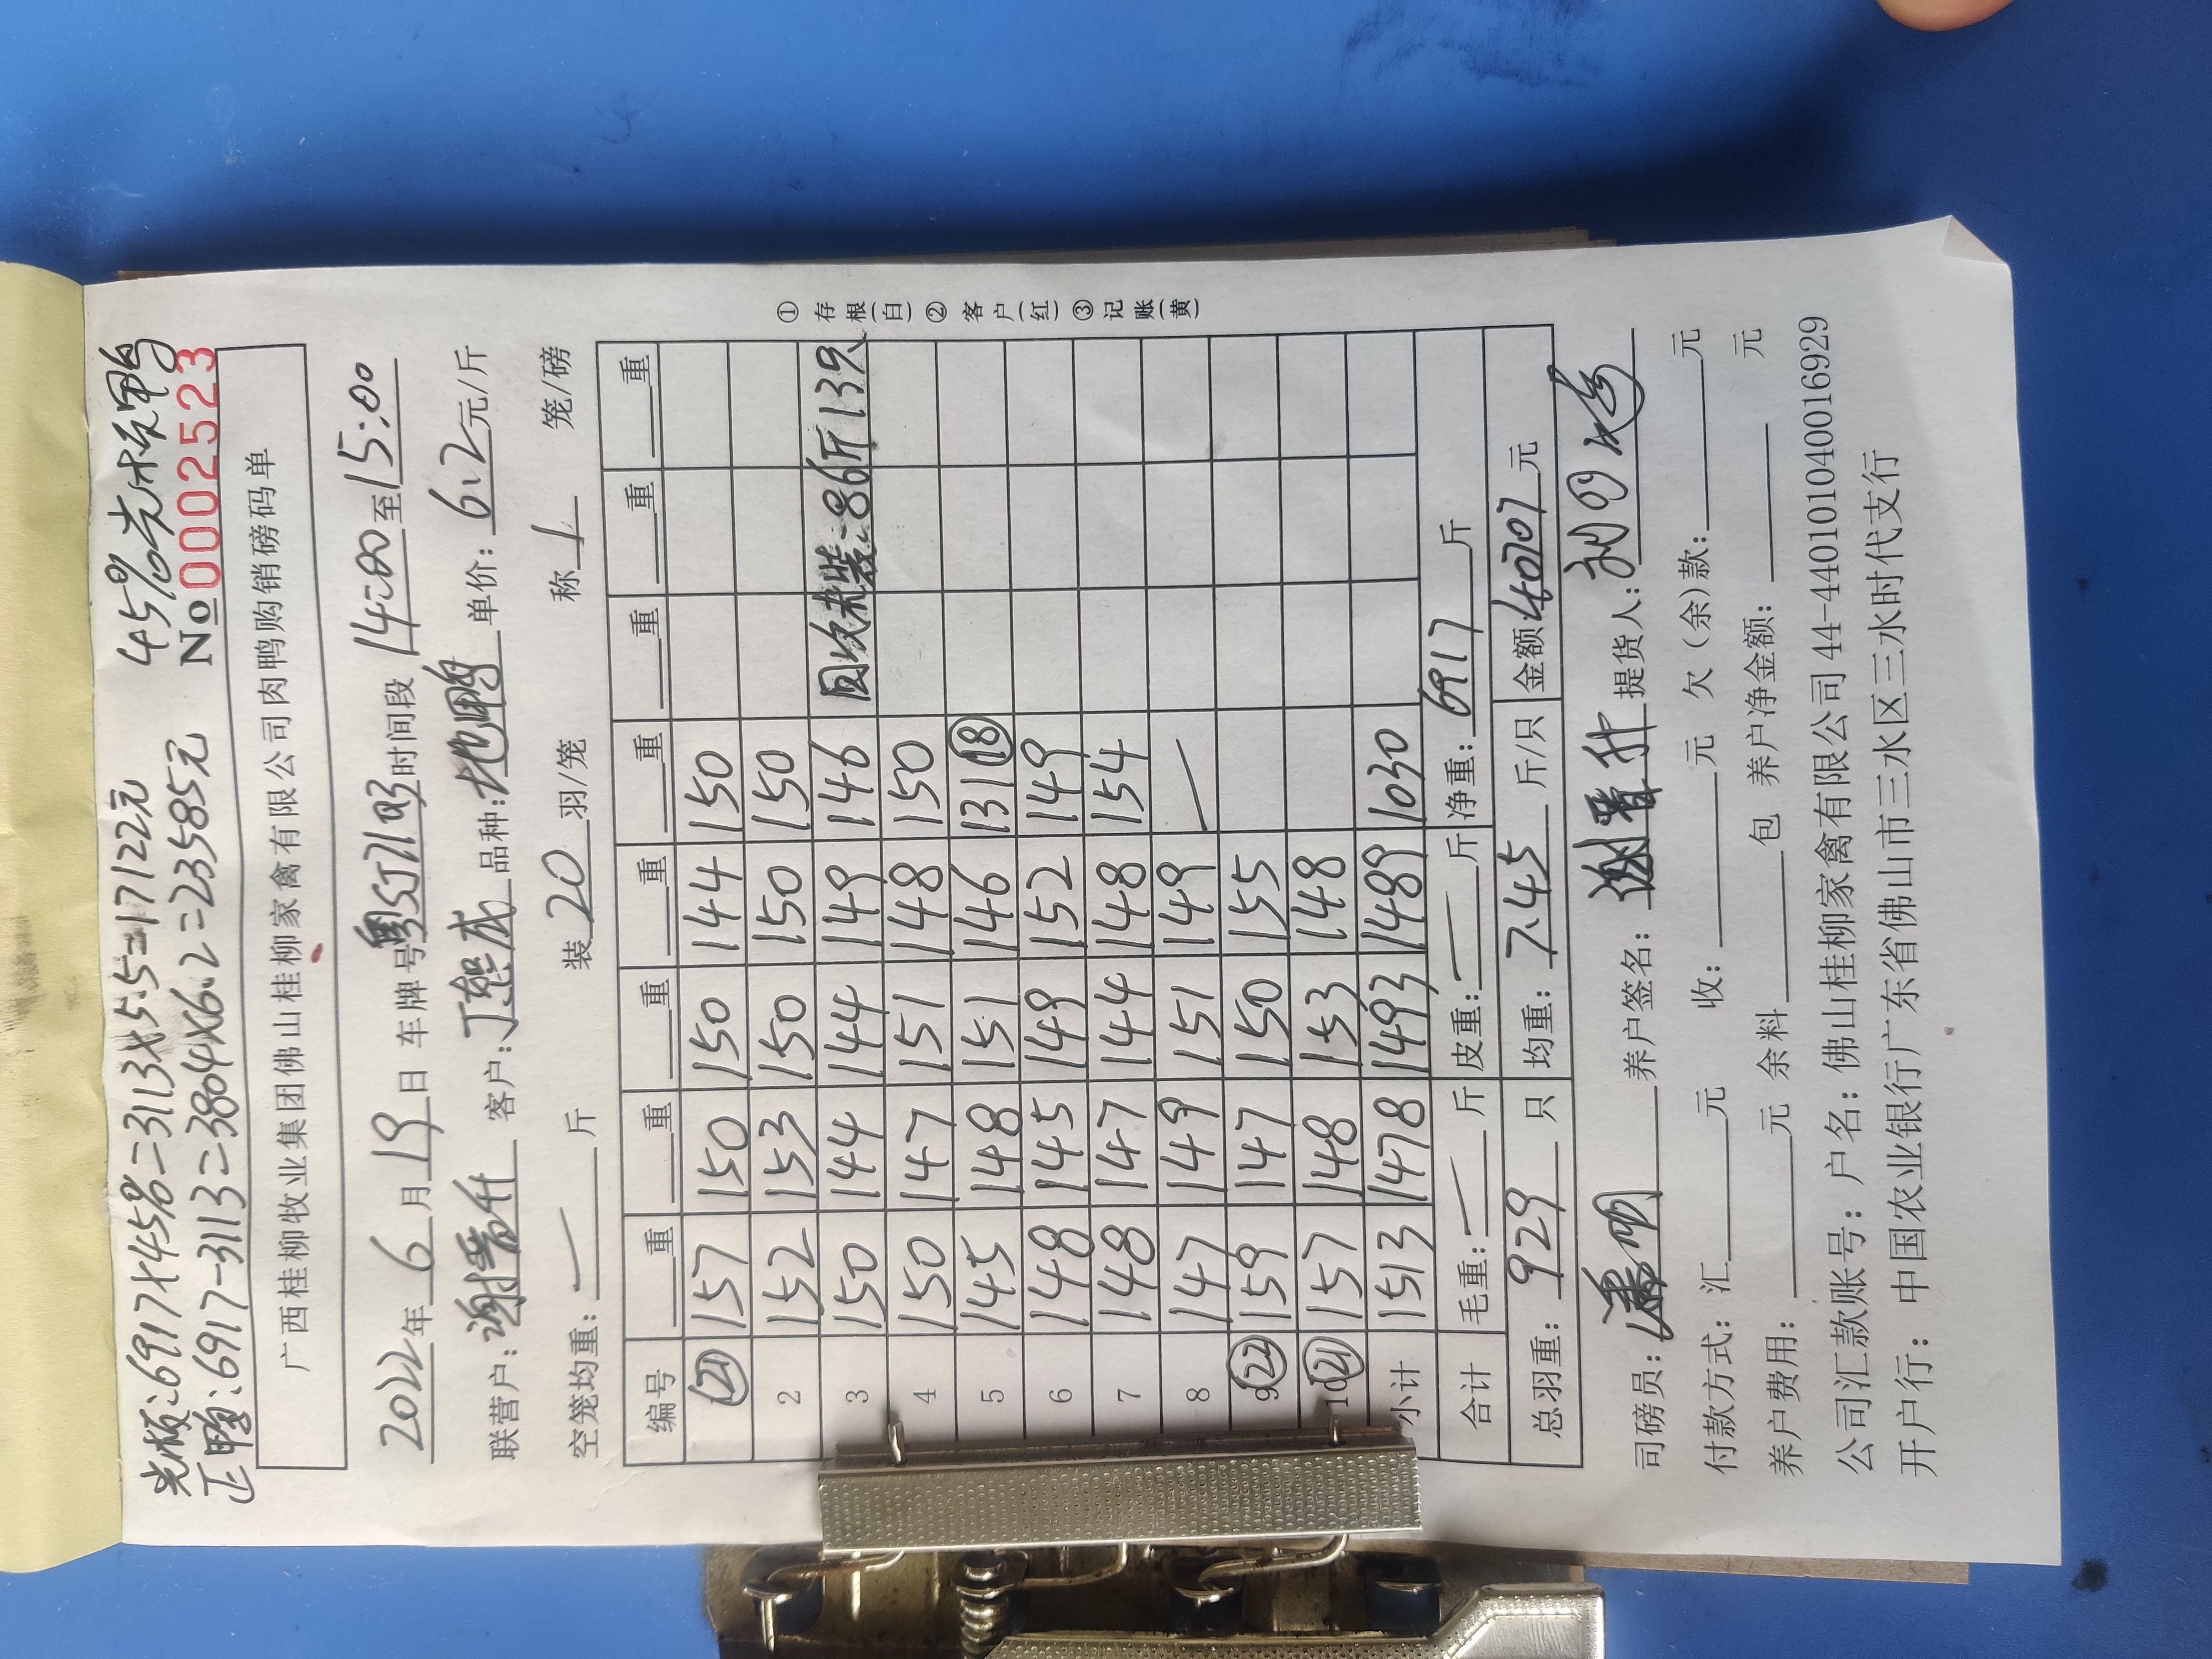 光板：6917×45%=3113×5.5=17122元 45%光板鸭
正鸭：6917-3113=3804×6.2=23585元 No 0002523
广西桂柳牧业集团佛山桂柳家禽有限公司肉鸭购销磅码单
2022年 6 月 19 日 车牌号 时间段 14:00 至 15:00
联营户：谢晋升 客户：丁熊成 品种： 单价：6.2 元/斤
空笼均重：— 斤 装 20 羽/笼 称 1 笼/磅
编号 重 重 重 重 重 重 重 重
㉑ 157 150 150 144 150
2 152 153 150 150 150
3 150 144 144 149 146 回收未装：86斤13只
4 150 147 151 148 150
5 145 148 151 146 131 ⑱
6 148 145 149 152 149
7 148 147 144 148 154
8 147 149 151 149 —
9 ㉒ 159 147 150 155
10 ㉑ 157 148 153 148
小计 1513 1478 1493 1489 1030
合计 毛重：— 斤 皮重：— 斤 净重：6917 斤
总羽重：929 只 均重：7.45 斤/只 金额 40707 元
司磅员： 养户签名：谢晋升 提货人：
付款方式：汇 元 收： 元 欠（余）款： 元
养户费用： 元 余料 包 养户净金额： 元
公司汇款账号：户名：佛山桂柳家禽有限公司 44-440101040016929
开户行：中国农业银行广东省佛山市三水区三水时代支行
① 存根(白) ② 客户(红) ③ 记账(黄)